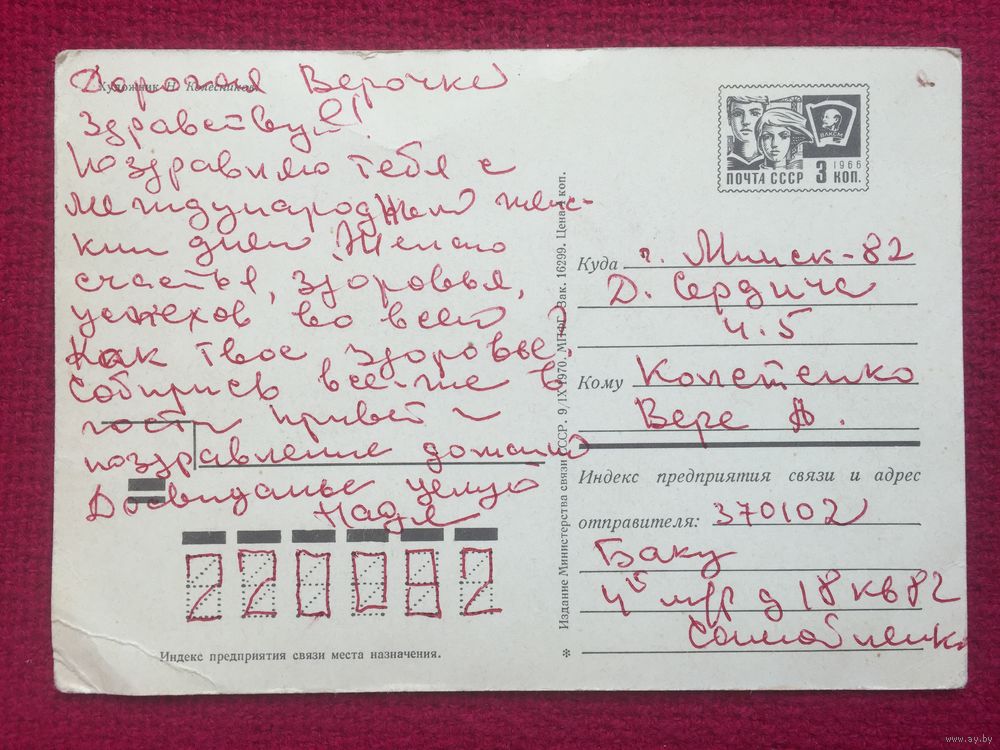 Художник Н. Колесников.
Дорогая Верочка
Здравствуй!
Поздравляю тебя с
международнем жен-
ким днем Желаю
счастья, здоровья,
успехов во всем
Как твое здоровье?
Собирись все-же в
гости привет и
поздравление домашн
До свиданье целую
Надя
220082
Индекс предприятия связи места назначения.
Издание Министерства связи СССР. 9/IX 1970. МПФГ. Зак. 16299. Цена 4 коп.
ВЛКСМ
1966
ПОЧТА СССР 3 КОП.
Куда г. Минск-82
Д. Сердича
4.5
Кому
Вере А.
Индекс предприятия связи и адрес
отправителя: 370102
Баку
4й м/р д 18 кв 82
*
www.ay.by